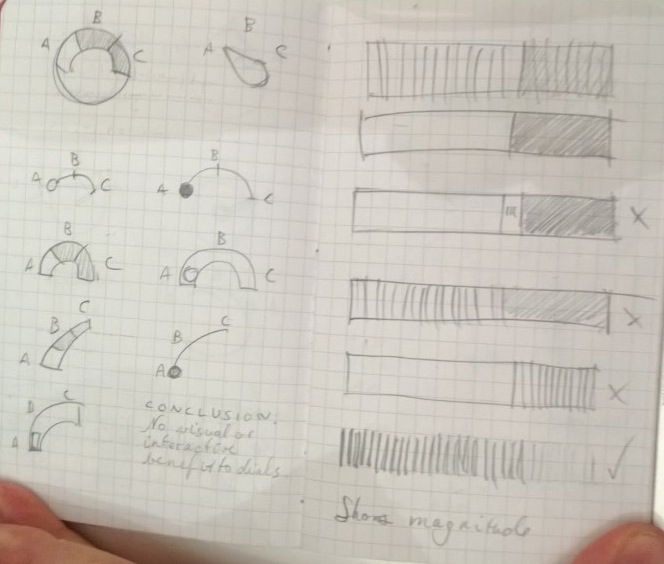 B
A
C
B
A
C
B
A
C
B
A
C
B
A
C
B
A
C
C
B
A
C
B
A
C
B
A
CONCLUSION:
No visual or
interactive
benefit to dials
X
X
X
✓
Show magnitude